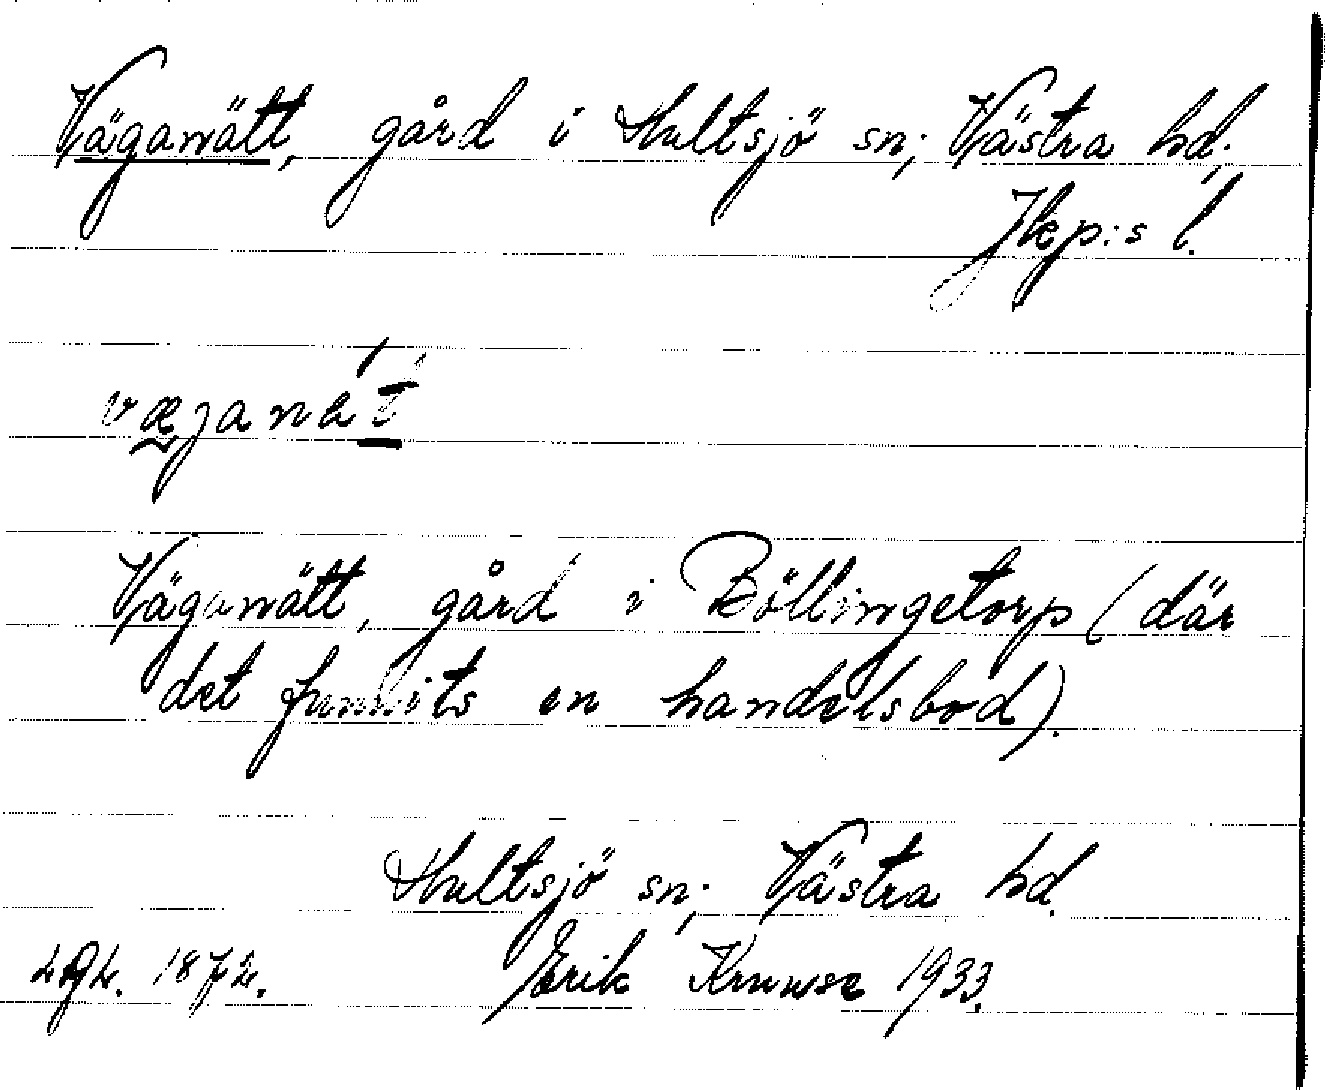 Väganätt, gård i Hultsjö sn; Västra hd;
Jkp:s l.
Väganätt, gård i Böllingetorp (där
det funnits en handelsbod).
Hultsjö sn; Västra hd.
1872. Erik Kruuse 1933.